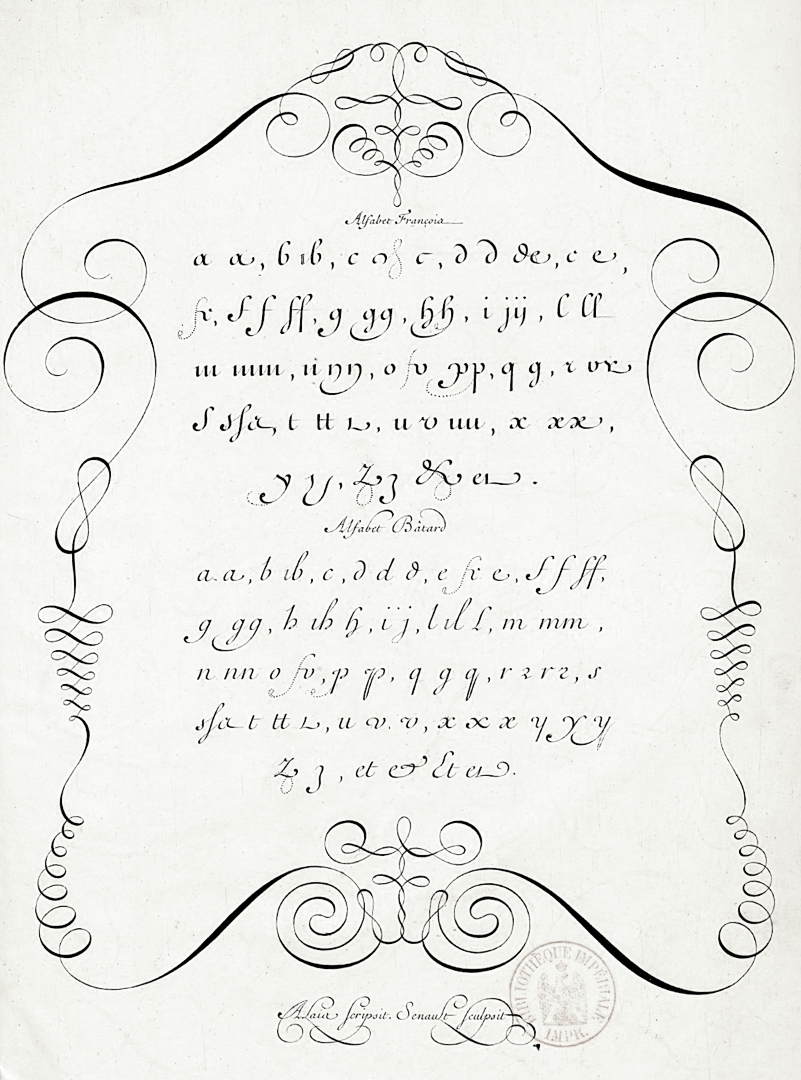 Alfabet François
a a, b ıb, c c c, d d de, e e,
fe, f f ff, g gg, h h, i jij, l ll
m mm, n nn, o fv pp, q g, r vr
s ssa, t tt t, u v uu, x xx,
y y, z z & et.
Alfabet Bâtard
a.a, b ıb, c, d d d, e fe e, f f ff,
g gg, h ıh h, i j, l ıl l, m mm,
n nn o fv, p p, q g q, r 2 r 2, s
ssa t tt t, u v. v, x x x y y y
z z, et & Et et.
Alais scripsit. Senault sculpsit
BIBLIOTHÈQUE IMPÉRIALE
IMPR.